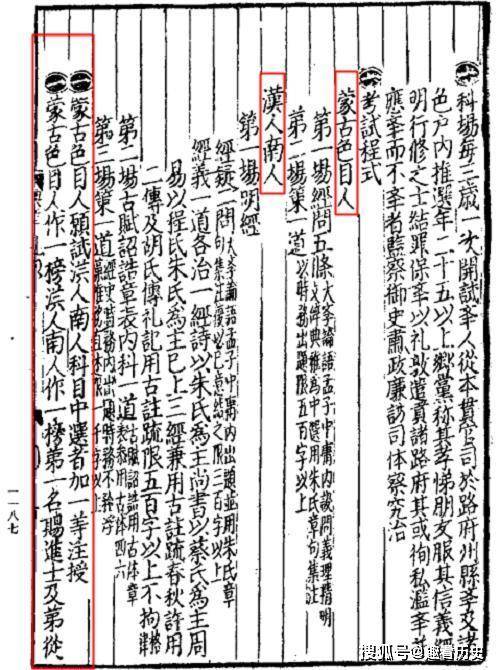 科場每三歲一次開試舉人從本貫官司於路府州縣學及諸
色戶內推選年二十五以上鄉黨稱其孝悌朋友服其信義經
明行修之士結罪保舉以礼敦遣貢諸路府其或徇私濫舉并
應舉而不舉者監察御史肅政廉訪司体察究治
考試程式
蒙古色目人
第一場經問五條大學論語孟子中庸內設問義理精明文辭典雅爲中選用朱氏章句集註
第二場策一道以時務出題限五百字以上
漢人南人
第一場明經
經疑二問大學論語孟子中庸內出題並用朱氏章句集註復以己意結之限三百字以上
經義一道各治一經詩以朱氏爲主尚書以蔡氏爲主周
易以程氏朱氏爲主已上三經兼用古註疏春秋許用
三傳及胡氏傳礼記用古註疏限五百字以上不拘格律
第二場古賦詔誥章表內科一道古賦詔誥用古体章表參用古体四六
第三場策一道經史時務內出題不矜浮藻惟務直述限一千字以上
蒙古色目人願試漢人南人科目中選者加一等注授
蒙古色目人作一榜漢人南人作一榜第一名賜進士及第從
一一八七
搜狐号@趣看历史